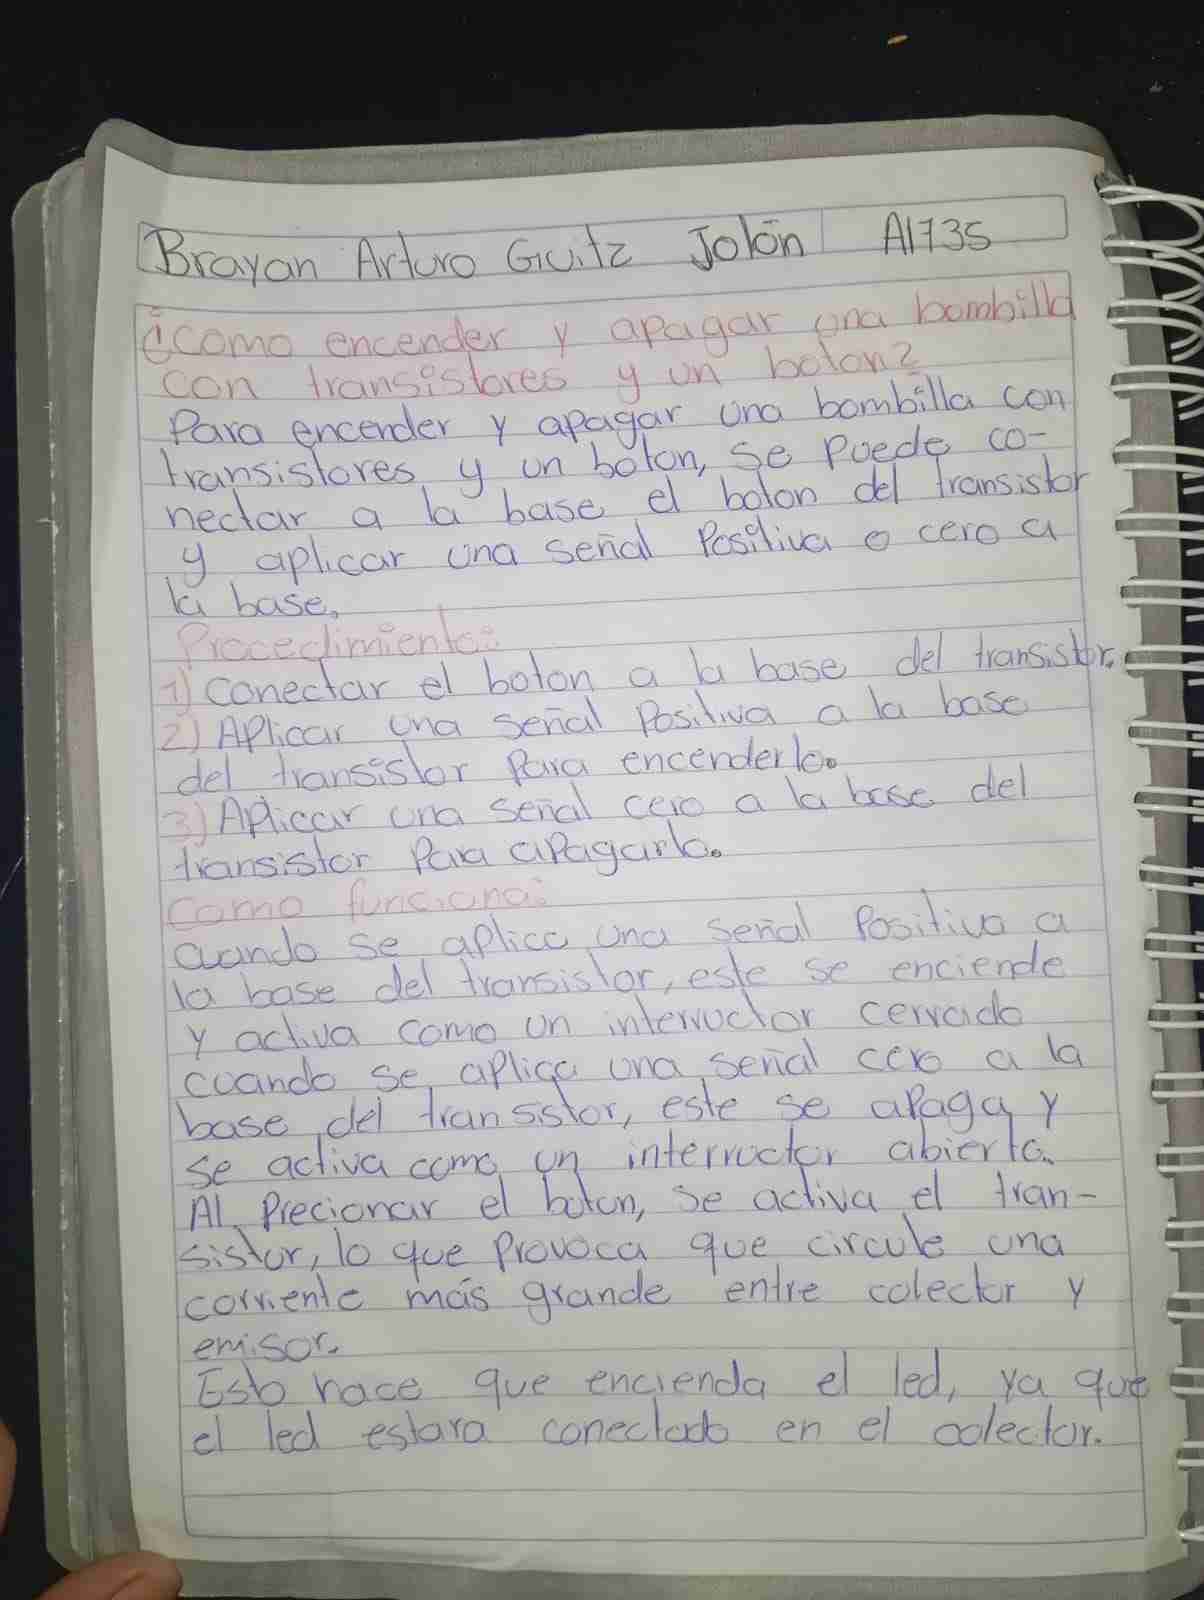 Brayan Arturo Guitz Jolón A1735
¿como encender y apagar una bombilla
con transistores y un boton?
Para encender y apagar una bombilla con
transistores y un boton, se puede co-
nectar a la base el boton del transistor
y aplicar una señal Positiva o cero a
la base.
Procedimiento:
1) conectar el boton a la base del transistor.
2) Aplicar una señal Positiva a la base
del transistor Para encenderlo.
3) Aplicar una señal cero a la base del
transistor Para apagarlo.
como funciona:
cuando se aplica una señal Positiva a
la base del transistor, este se enciende
y activa como un interructor cerrado
cuando se apliga una señal cero a la
base del transistor, este se apaga y
se activa como un interructor abierto.
Al Precionar el boton, se activa el tran-
sistor, lo que Provoca que circule una
corriente más grande entre colector y
emisor.
Esto hace que encienda el led, ya que
el led estara conectado en el colector.